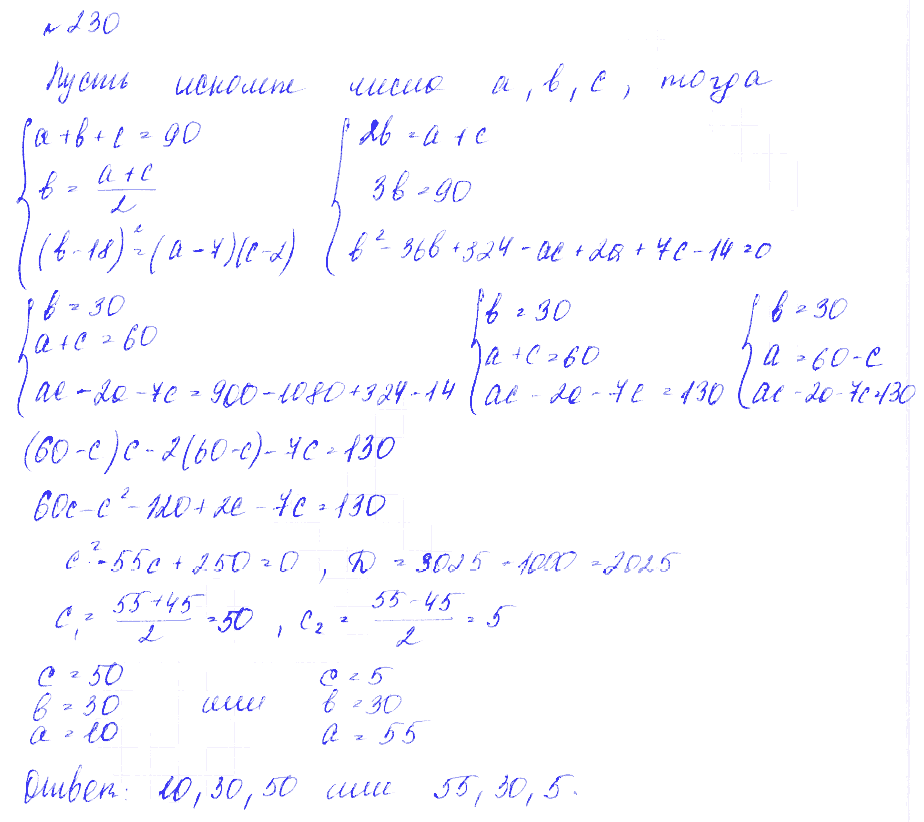 №230
Пусть искомые числа a, b, c, тогда
a+b+c=90
b = (a+c)/2
(b-18)²=(a-7)(c-2)
2b=a+c
3b=90
b²-36b+324-ac+2a+7c-14=0
b=30
a+c=60
ac-2a-7c=900-1080+324-14
b=30
a+c=60
ac-2a-7c=130
b=30
a=60-c
ac-2a-7c=130
(60-c)c-2(60-c)-7c=130
60c-c²-120+2c-7c=130
c²-55c+250=0, D=3025-1000=2025
c₁=(55+45)/2=50, c₂=(55-45)/2=5
c=50 c=5
b=30 или b=30
a=10 a=55
Ответ: 10, 30, 50 или 55, 30, 5.